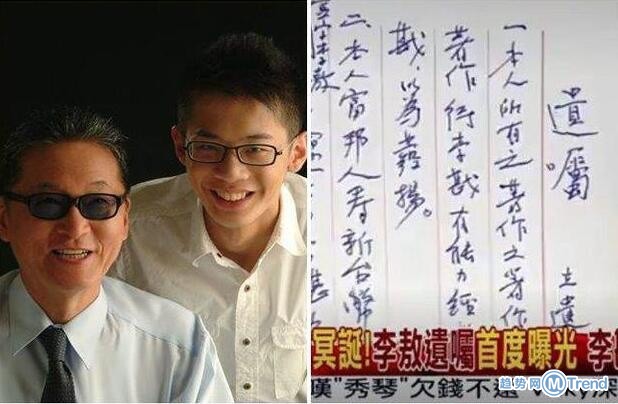 遺囑
立遺
一本人所有之著作之著作
著作 李戡有能力經
戡,以為發揚。
二、本人富邦人壽新台幣
冥誕!李敖遺囑首度曝光 李
嘆"秀琴"欠錢不還
趋势网 MTrend